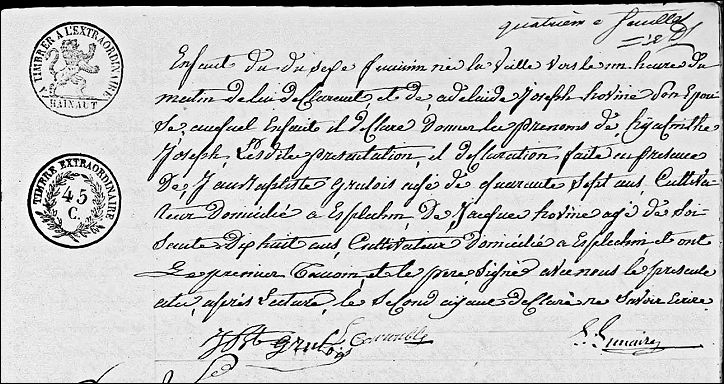 quatrième feuille
A TIMBRER A L'EXTRAORDINAIRE
HAINAUT
TIMBRE EXTRAORDINAIRE
45
C.
Enfant du du sexe feminin née la Ville vers le m heure du
matin de lui declarant, et de, adelaide Joseph hovine Son Epou
Se, auquel Enfant il declare Donner les prenoms de hyacinthe
Joseph, Les dite presentation, et declaration faite en presence
De, Jean Baptiste grulois agé de quarante Sept ans, Cultiva-
teur Domicilié a Esplechin, De Jacques hovine agé de Soi
Sante Dix huit ans, Cultivateur Domicilié a Esplechin, et ont
Le premier temoin, et le pere, Signé avec nous le present
acte, après Lecture, le Second ayant declaré ne Savoir Ecrire
JBt Grulois